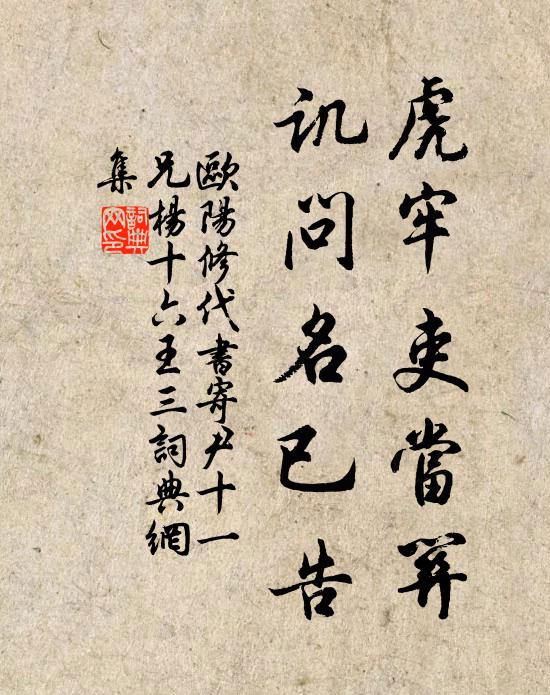 虎牢吏當關
譏問名已告
歐陽修代書寄尹十一
兄楊十六王三詞典網
集
詞典
网印